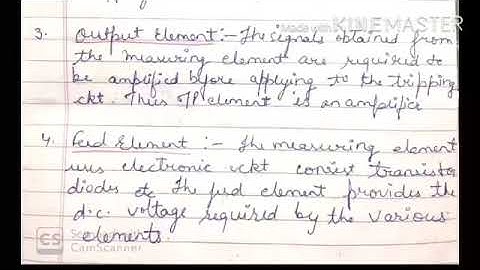 3. Output Element:- The signals obtained from
the measuring element are required to
be amplified before applying to the tripping
ckt. Thus O/P element is an amplifier
4. Feed Element :- The measuring element
uses electronic ckt consist transistor
diodes etc The feed element provides the
d.c. voltage required by the various
elements.
Made with
KINEMASTER
CS
CamScanner